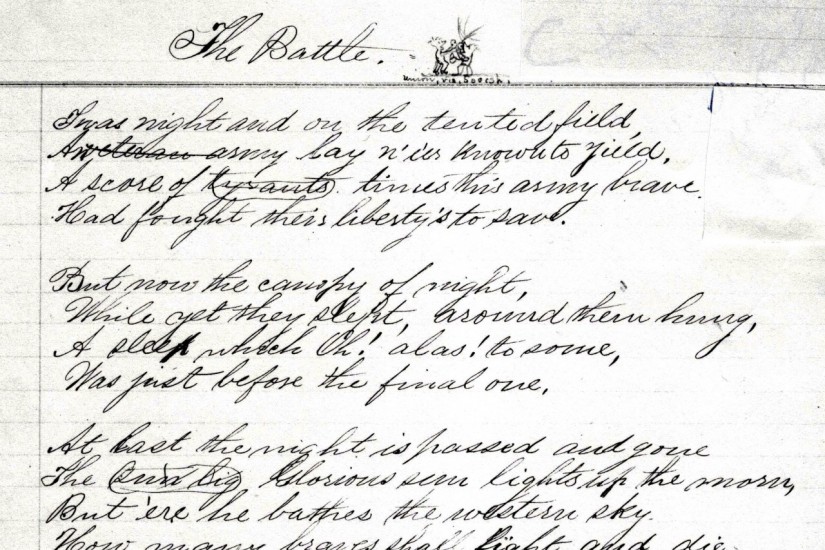 The Battle.
Union, vs, Secesh,
Twas night and on the tented field,
A veteran army lay n'ier known to yield,
A score of tyrants times this army brave.
Had fought theirs liberty's to save.
But now the canopy of night,
While yet they slept, around them hung,
A sleep which Oh! alas! to some,
Was just before the final one,
At last the night is passed and gone
The Glorious sun lights up the morn,
But 'ere he bathes the western sky.
How many braves shall fight and die